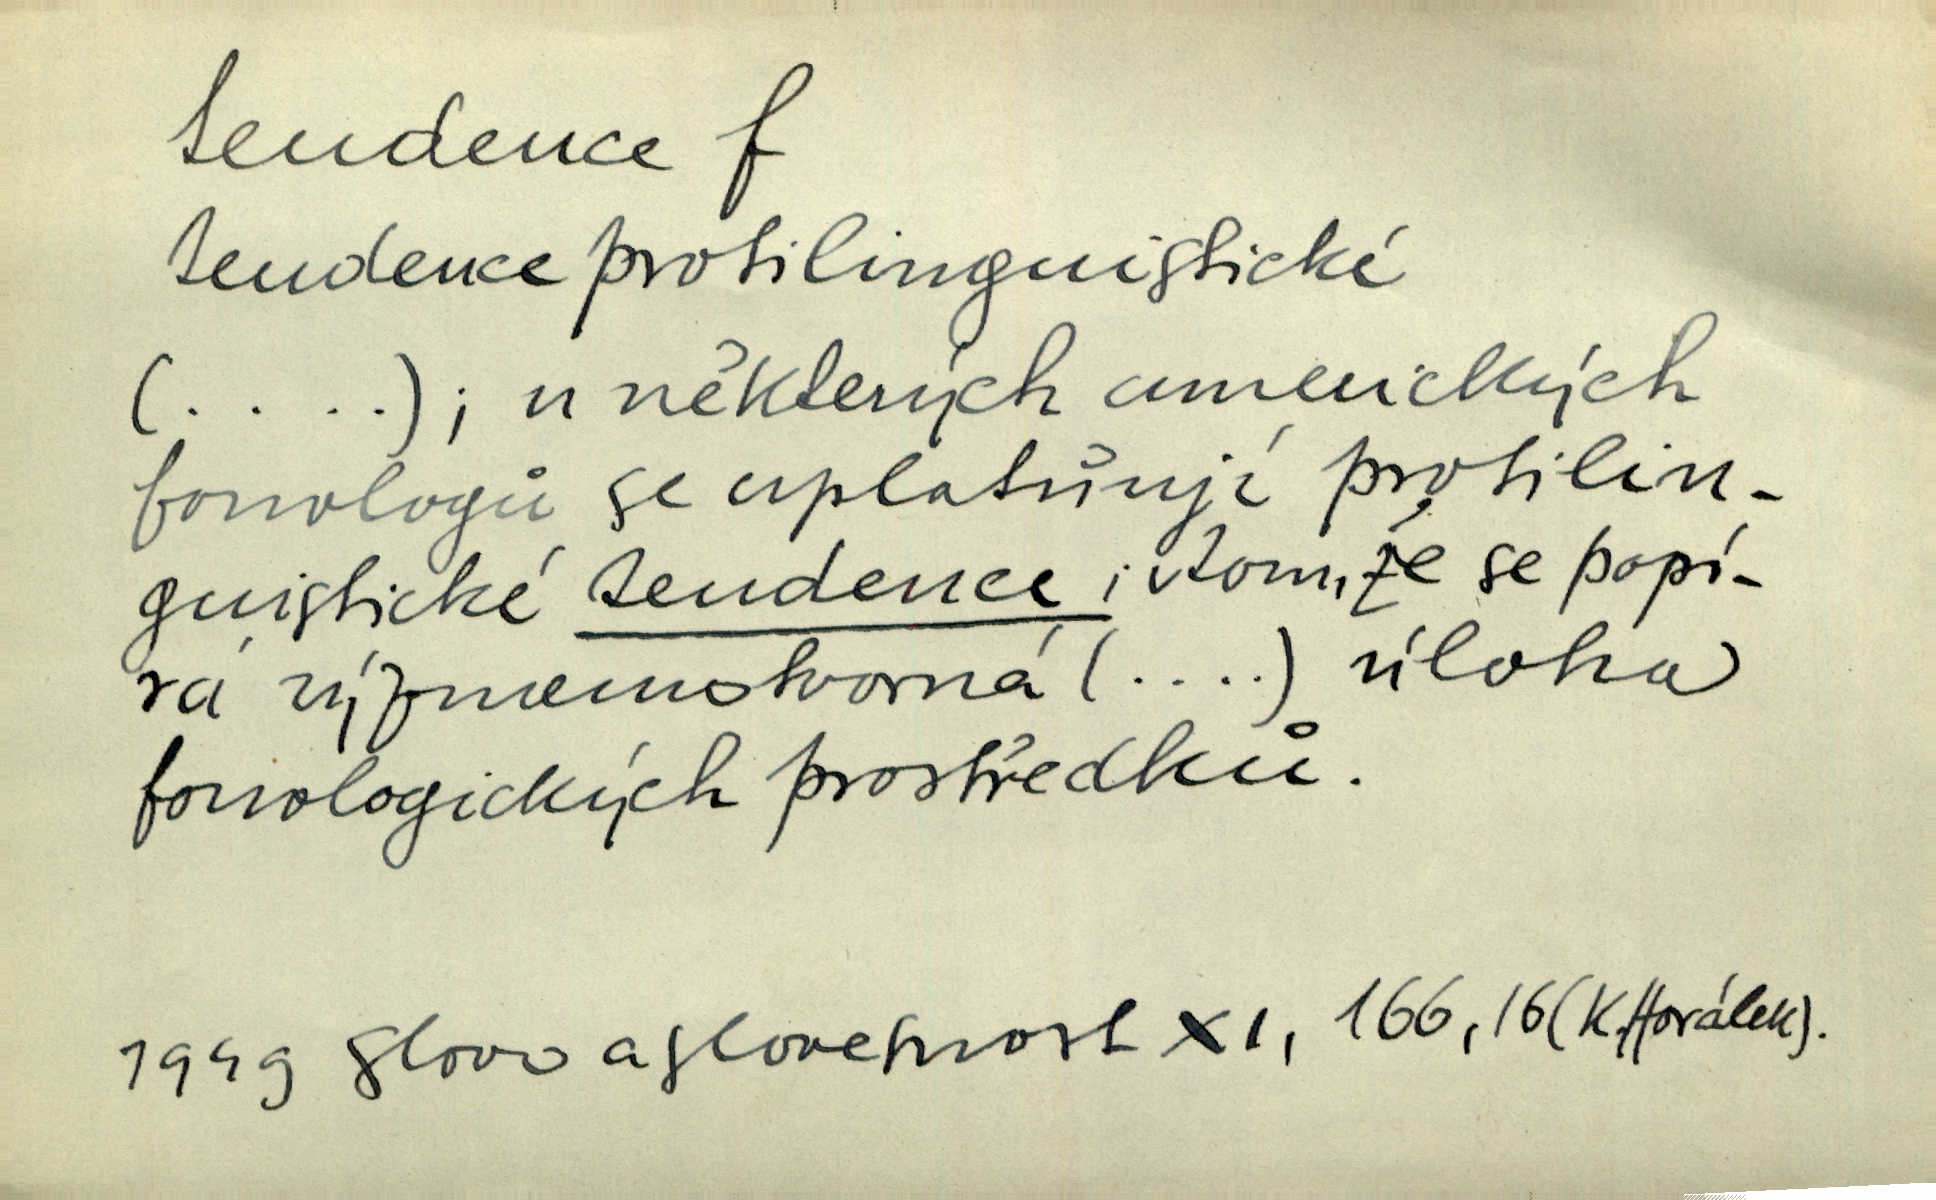 tendence f
tendence protilinguistické
(. . . .); u některých amerických
fonologů se uplatňují protilin-
guistické tendence i v tom, že se popí-
rá významotvorná (. . . .) úloha
fonologických prostředků.
1949 Slovo a slovesnost XI, 166, 16 (K. Horálek).